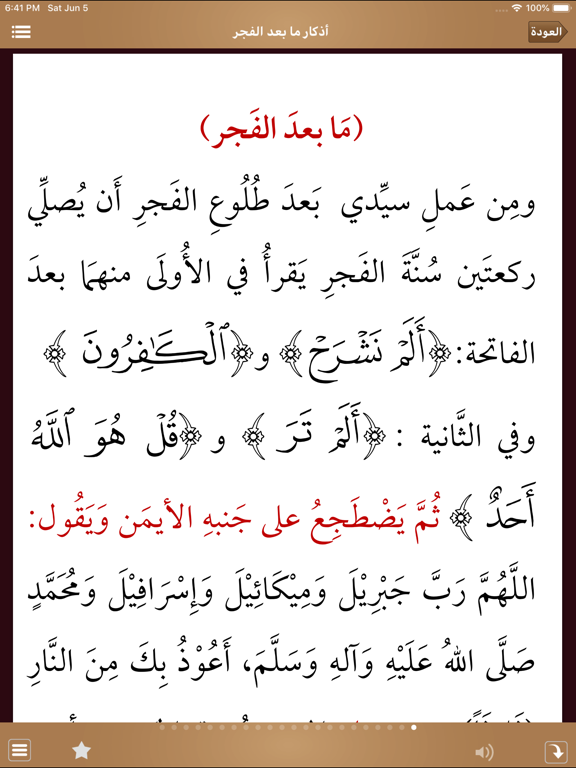 6:41 PM Sat Jun 5 100%
العودة
أذكار ما بعد الفجر
(مَا بعدَ الفَجر)
ومِن عَملِ سيِّدي بَعدَ طُلُوعِ الفَجرِ أَن يُصلِّي
ركعتَين سُنَّةَ الفَجرِ يَقرأُ في الأُولَى منهمَا بعدَ
الفاتحة: ﴿أَلَمۡ نَشۡرَحۡ﴾ و﴿ٱلۡكَـٰفِرُونَ ﴾
وفي الثَّانية : ﴿أَلَمۡ تَرَ ﴾ و ﴿قُلۡ هُوَ ٱللَّهُ
أَحَدٌ ﴾ ثُمَّ يَضْطَجِعُ على جَنبهِ الأيمَن وَيَقُول:
اللَّهُمَّ رَبَّ جَبْرِيْلَ وَمِيْكَائِيْلَ وَإِسْرَافِيْلَ وَمُحَمَّدٍ
صَلَّى اللهُ عَلَيْهِ وَآلِهِ وَسَلَّمَ، أَعُوْذُ بِكَ مِنَ النَّارِ